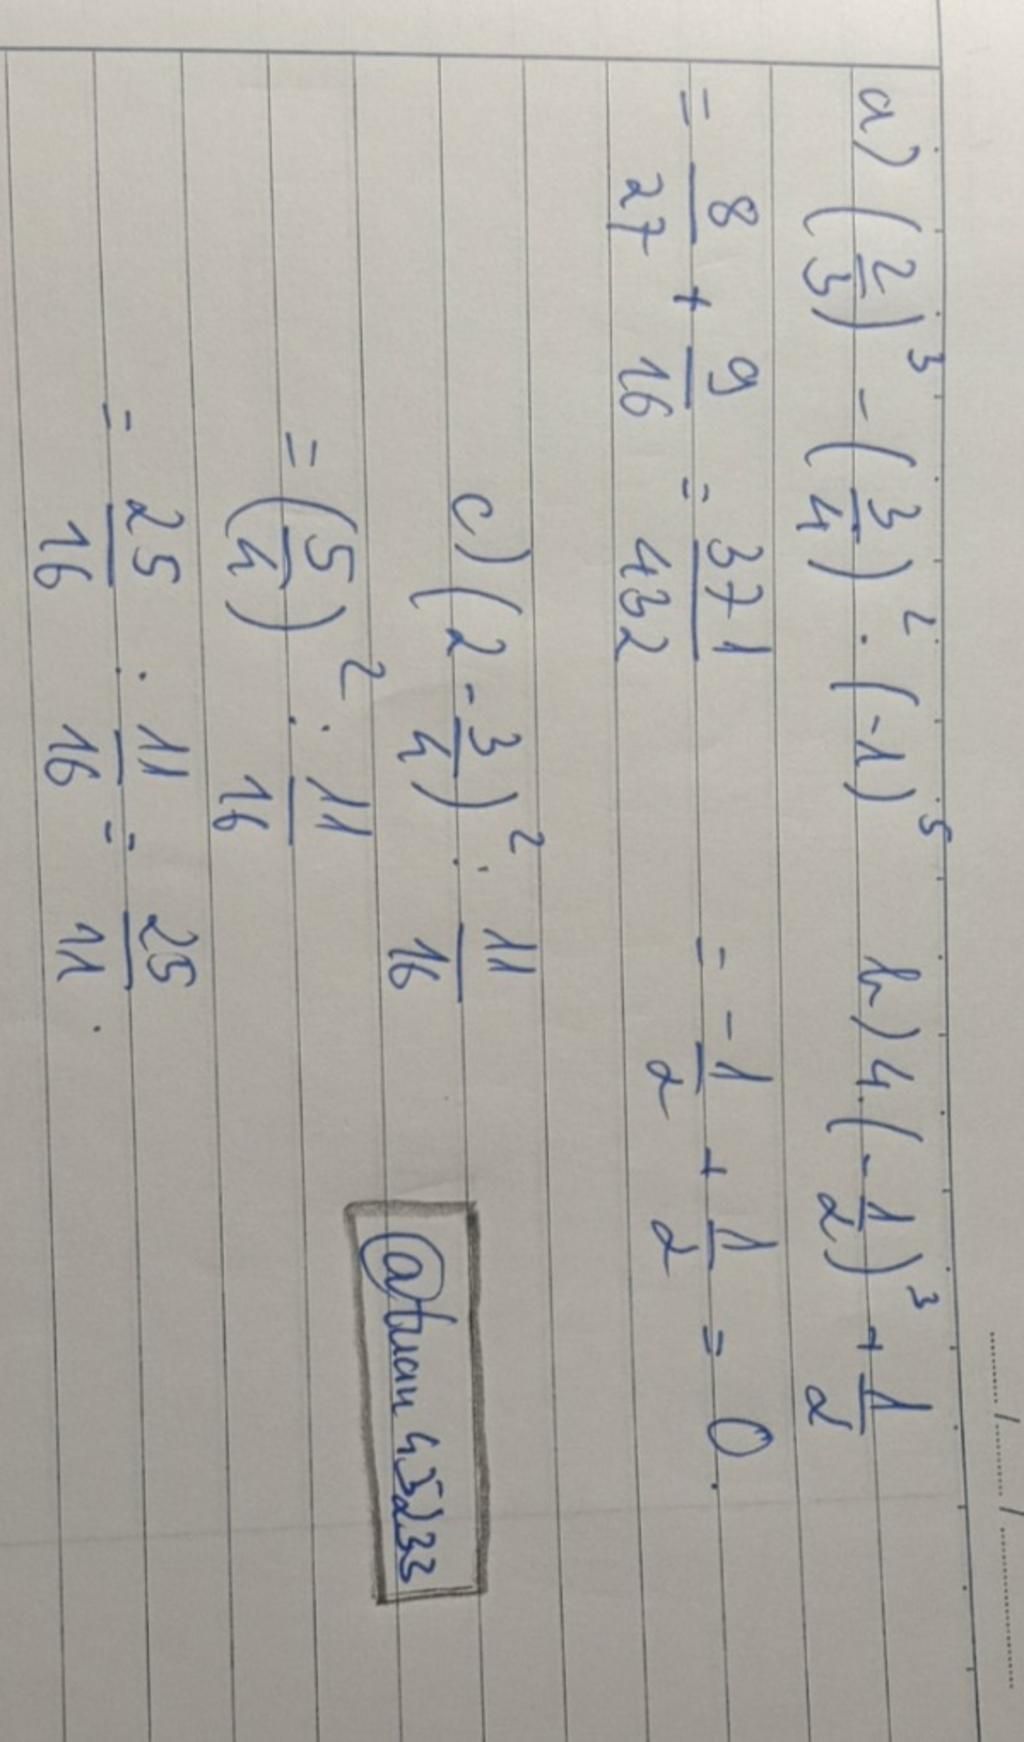 a) (2/3)³ - (3/4)² . (-1)⁵
= 8/27 + 9/16 = 371/432
b) 4.(-1/2)³ + 1/2
= -1/2 + 1/2 = 0.
c) (2 - 3/4)² : 11/16
= (5/4)² : 11/16
= 25/16 : 11/16 = 25/11.
@tuan45233